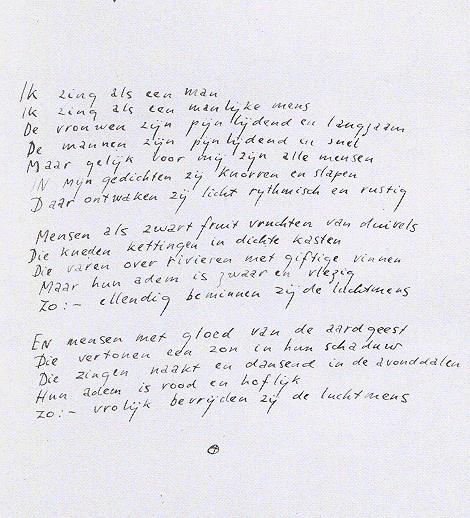 Ik zing als een man
Ik zing als een manlijke mens
De vrouwen zijn pijnlijdend en langzaam
De mannen zijn pijnlijdend en snel
Maar gelijk voor mij zijn alle mensen
IN mijn gedichten zij knorren en slapen
Daar ontwaken zij licht rythmisch en rustig
Mensen als zwart fruit vruchten van duivels
Die kneden kettingen in dichte kasten
Die varen over rivieren met giftige vinnen
Maar hun adem is zwaar en vlezig
Zo:- ellendig beminnen zij de luchtmens
EN mensen met gloed van de aardgeest
Die vertonen een zon in hun schaduw
Die zingen naakt en dansend in de avonddalen
Hun adem is rood en hoflijk
Zo:- vrolijk bevrijden zij de luchtmens